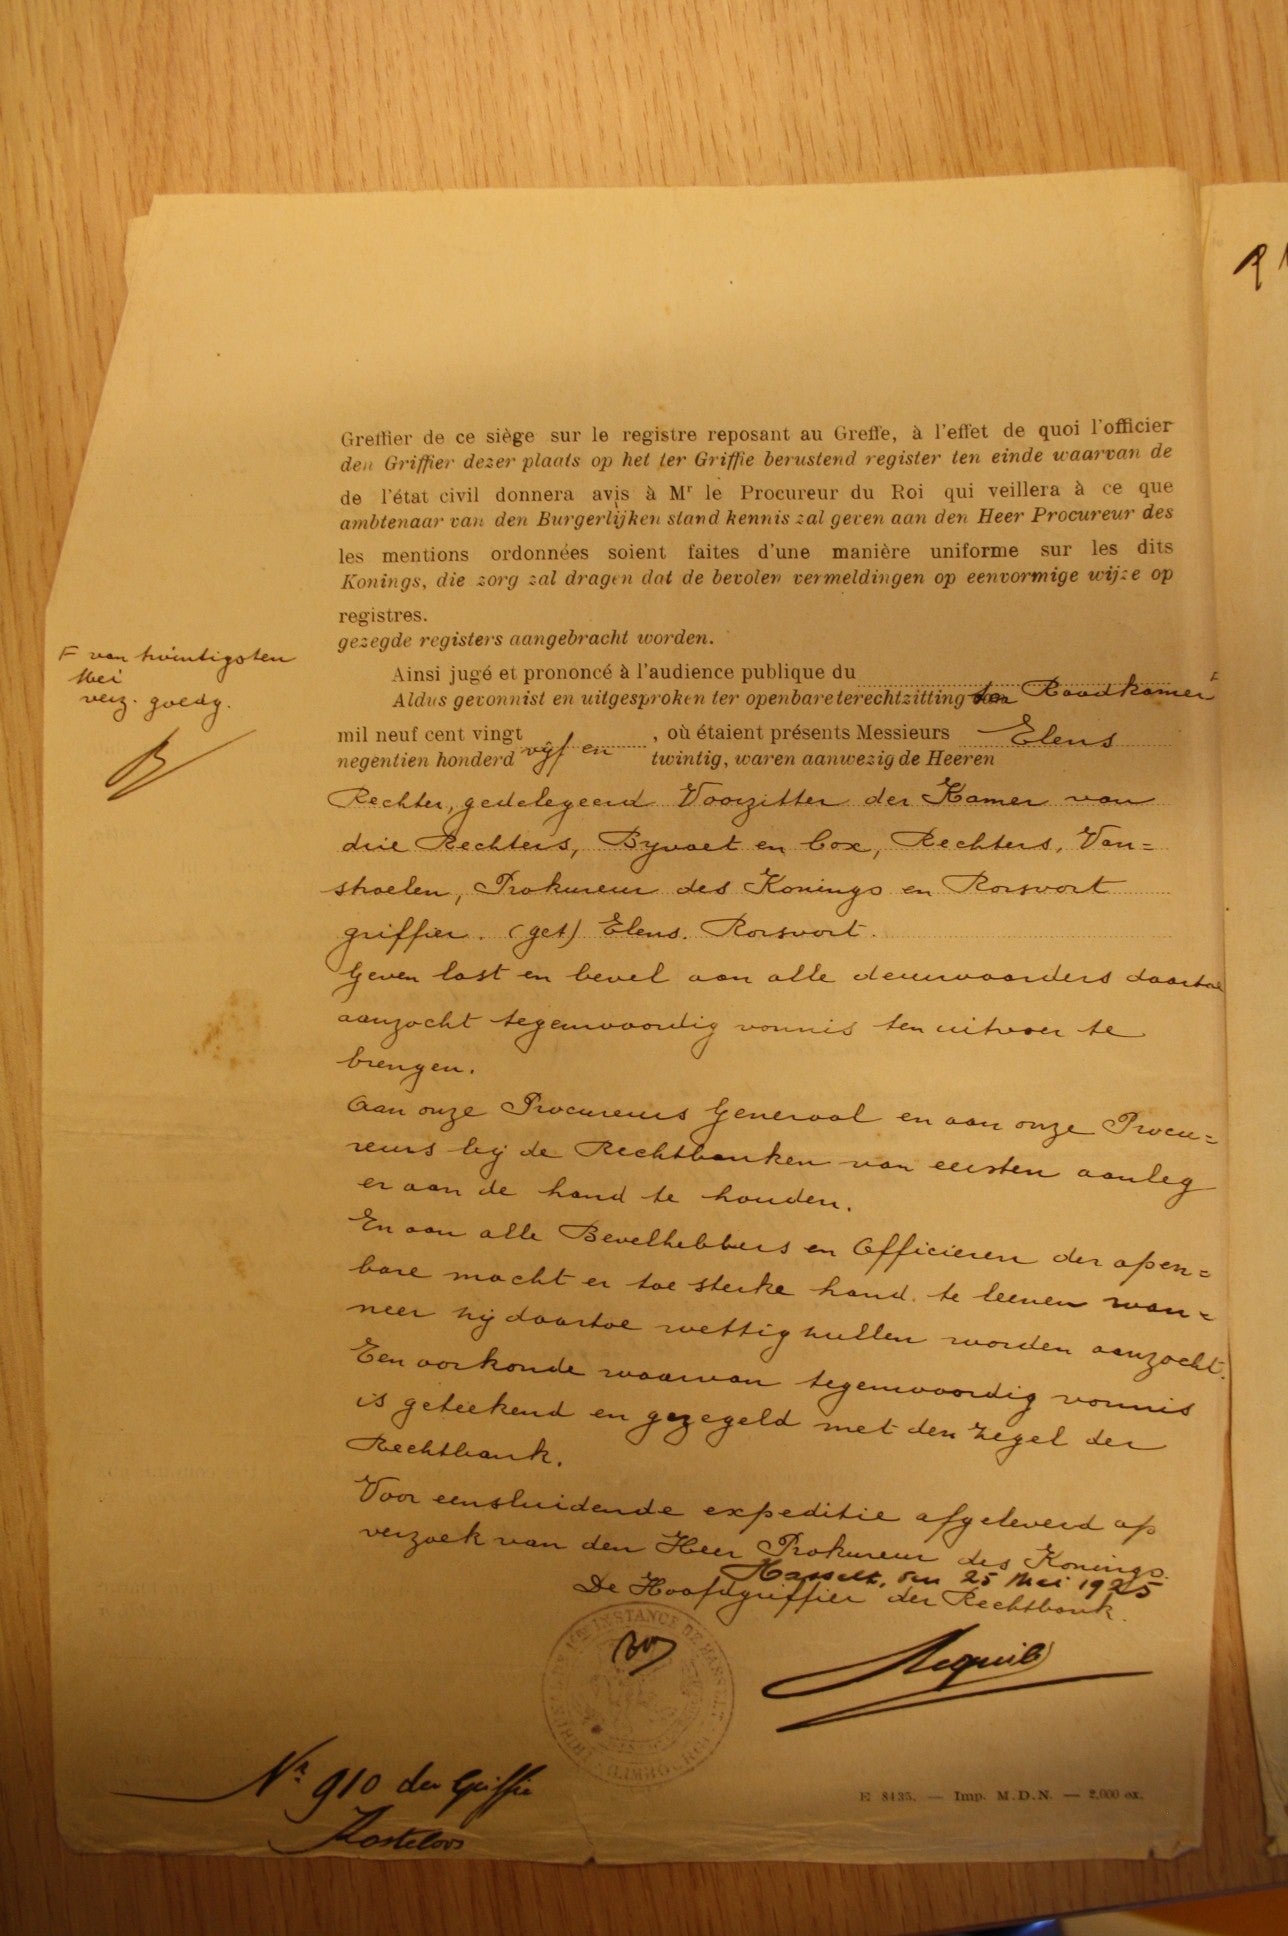 Greffier de ce siège sur le registre reposant au Greffe, à l'effet de quoi l'officier
den Griffier dezer plaats op het ter Griffie berustend register ten einde waarvan de
de l'état civil donnera avis à Mr le Procureur du Roi qui veillera à ce que
ambtenaar van den Burgerlijken stand kennis zal geven aan den Heer Procureur des
les mentions ordonnées soient faites d'une manière uniforme sur les dits
Konings, die zorg zal dragen dat de bevolen vermeldingen op eenvormige wijze op
registres.
gezegde registers aangebracht worden.
F van twintigsten
Mei
verz. goedg.
Ainsi jugé et prononcé à l'audience publique du
Aldus gevonnist en uitgesproken ter openbare terechtzitting ter Raadkamer F
mil neuf cent vingt , où étaient présents Messieurs Elens
negentien honderd vijf en twintig, waren aanwezig de Heeren
Rechter, gedelegeerd Voorzitter der Kamer van
drie Rechters, Byvoet en Cox, Rechters, Van=
straelen, Prokureur des Konings en Rorsvort
griffier. (get) Elens. Rorsvort.
Geven last en bevel aan alle deurwaarders daartoe
aanzocht tegenwoordig vonnis ten uitvoer te
brengen.
Aan onze Procureurs Generaal en aan onze Procu=
reurs bij de Rechtbanken van eersten aanleg
er aan de hand te houden.
En aan alle Bevelhebbers en Officieren der open=
bare macht er toe sterke hand te leenen wan=
neer zij daartoe wettig zullen worden aanzocht.
Een oorkonde waarvan tegenwoordig vonnis
is geteekend en gezegeld met den zegel der
Rechtbank.
Voor eensluidende expeditie afgeleverd op
verzoek van den Heer Prokureur des Konings.
Hasselt, den 25 Mei 1925
De Hoofdgriffier der Rechtbank.
INSTANCE DE HASSELT
(LIMBOURG)
Nr 910 der Griffie
E 8135. — Imp. M.D.N. — 2,000 ex.